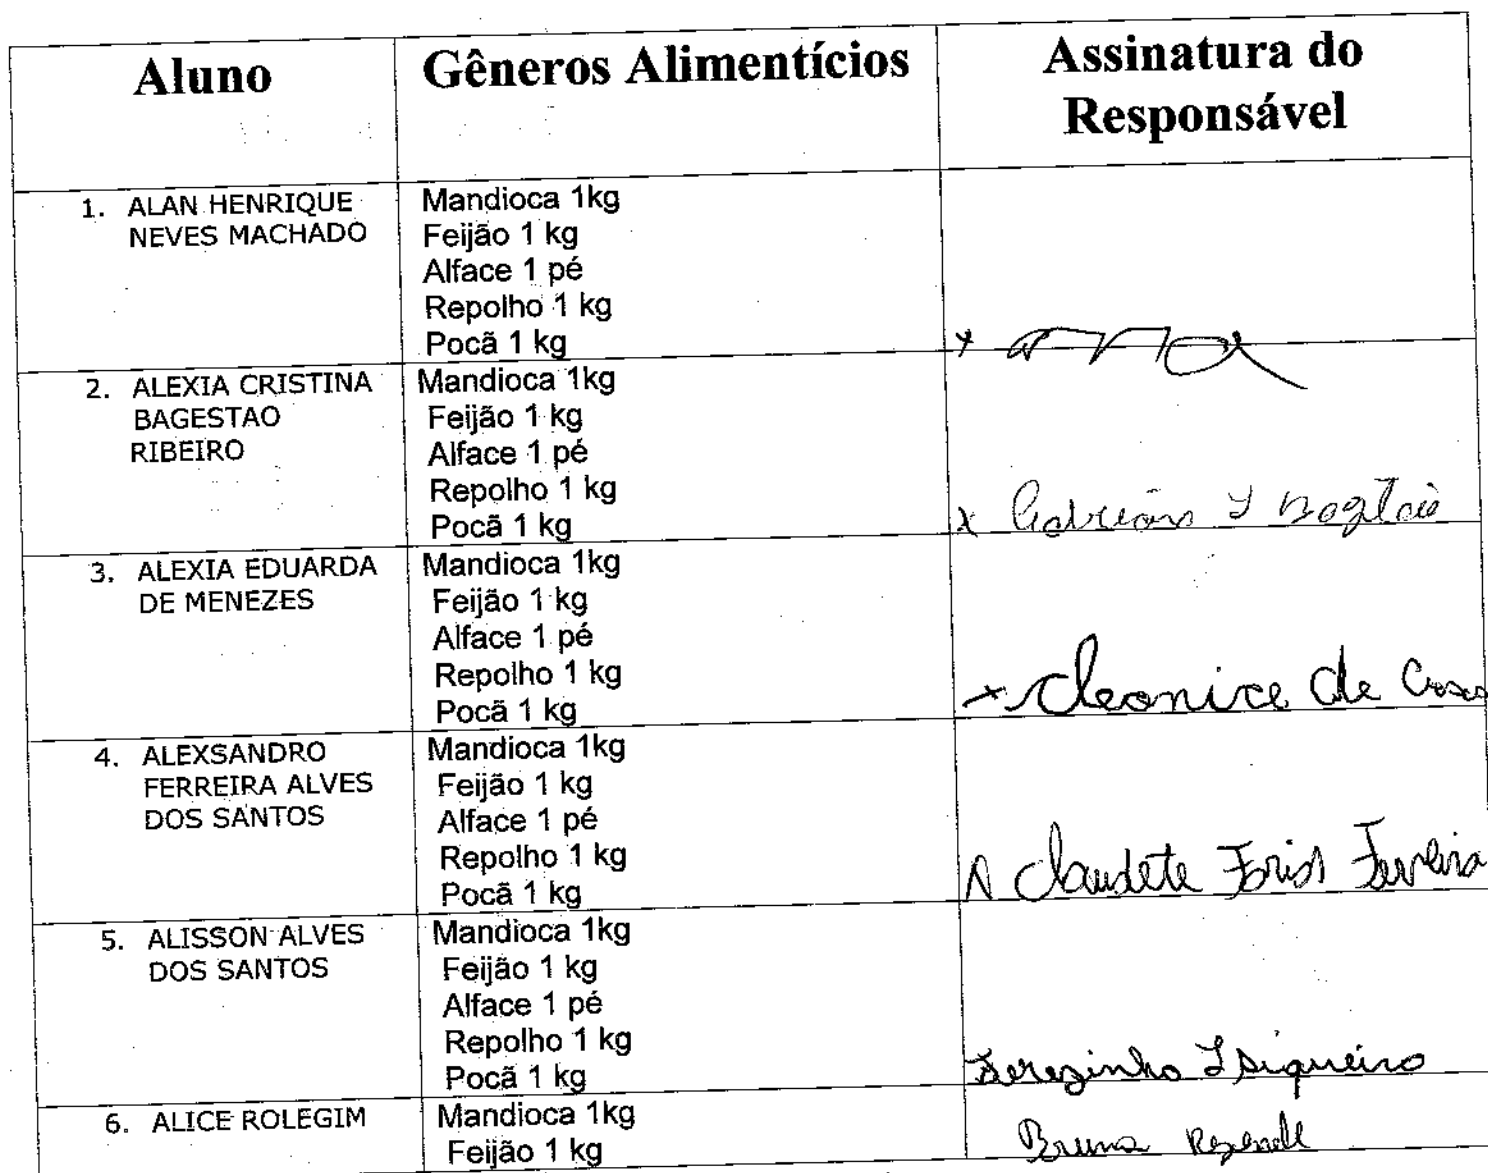 Aluno
Gêneros Alimentícios
Assinatura do
Responsável
1. ALAN HENRIQUE
NEVES MACHADO
Mandioca 1kg
Feijão 1 kg
Alface 1 pé
Repolho 1 kg
Pocã 1 kg
x
2. ALEXIA CRISTINA
BAGESTAO
RIBEIRO
Mandioca 1kg
Feijão 1 kg
Alface 1 pé
Repolho 1 kg
Pocã 1 kg
x
3. ALEXIA EDUARDA
DE MENEZES
Mandioca 1kg
Feijão 1 kg
Alface 1 pé
Repolho 1 kg
Pocã 1 kg
x Cleonice de
4. ALEXSANDRO
FERREIRA ALVES
DOS SANTOS
Mandioca 1kg
Feijão 1 kg
Alface 1 pé
Repolho 1 kg
Pocã 1 kg
Claudete Ferreira
5. ALISSON ALVES
DOS SANTOS
Mandioca 1kg
Feijão 1 kg
Alface 1 pé
Repolho 1 kg
Pocã 1 kg
Terezinha Siqueira
6. ALICE ROLEGIM
Mandioca 1kg
Feijão 1 kg
Bruna Rezende